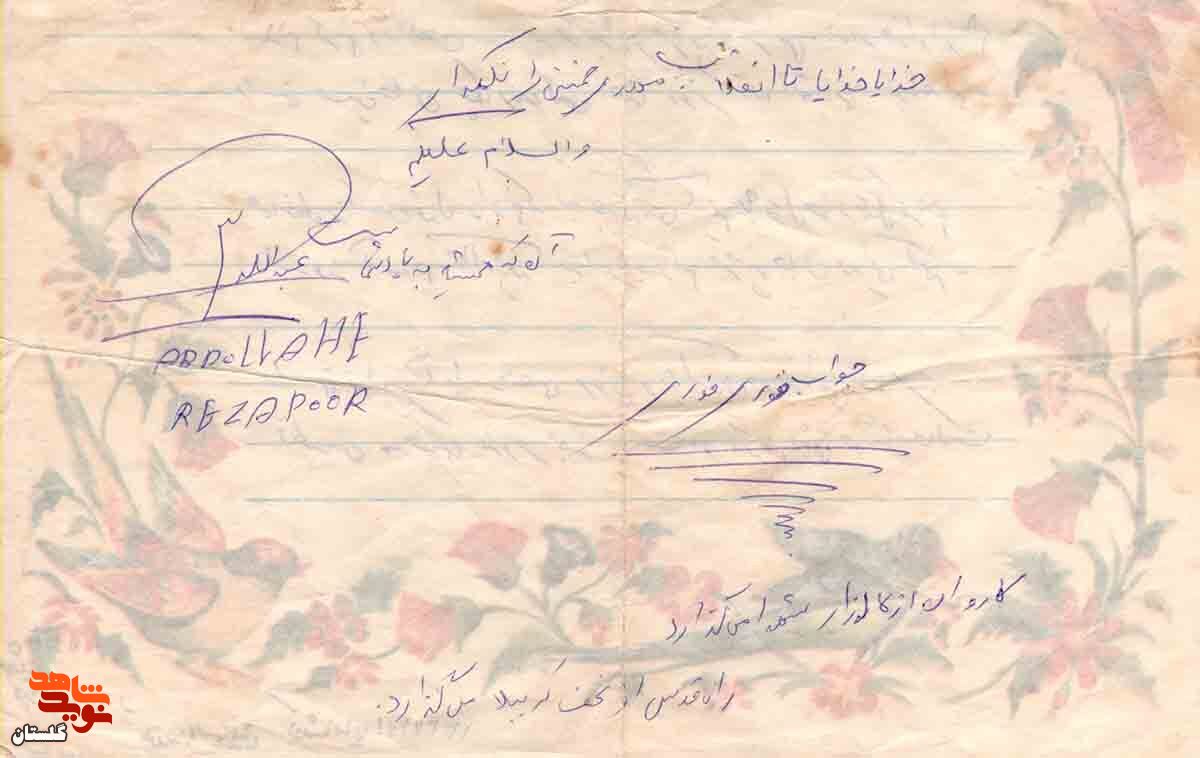 خدایا خدایا تا انقلاب مهدی خمینی را نگهدار
والسلام علیکم
آن که همیشه به یاد شماست عبدالله
ABDOLLAHE
REZAPOOR
جواب فوری فوری
کاروان از کالوزار شهدا می گذارد
راه قدس از نجف کربلا می گذارد.
نوید شاهد
گلستان